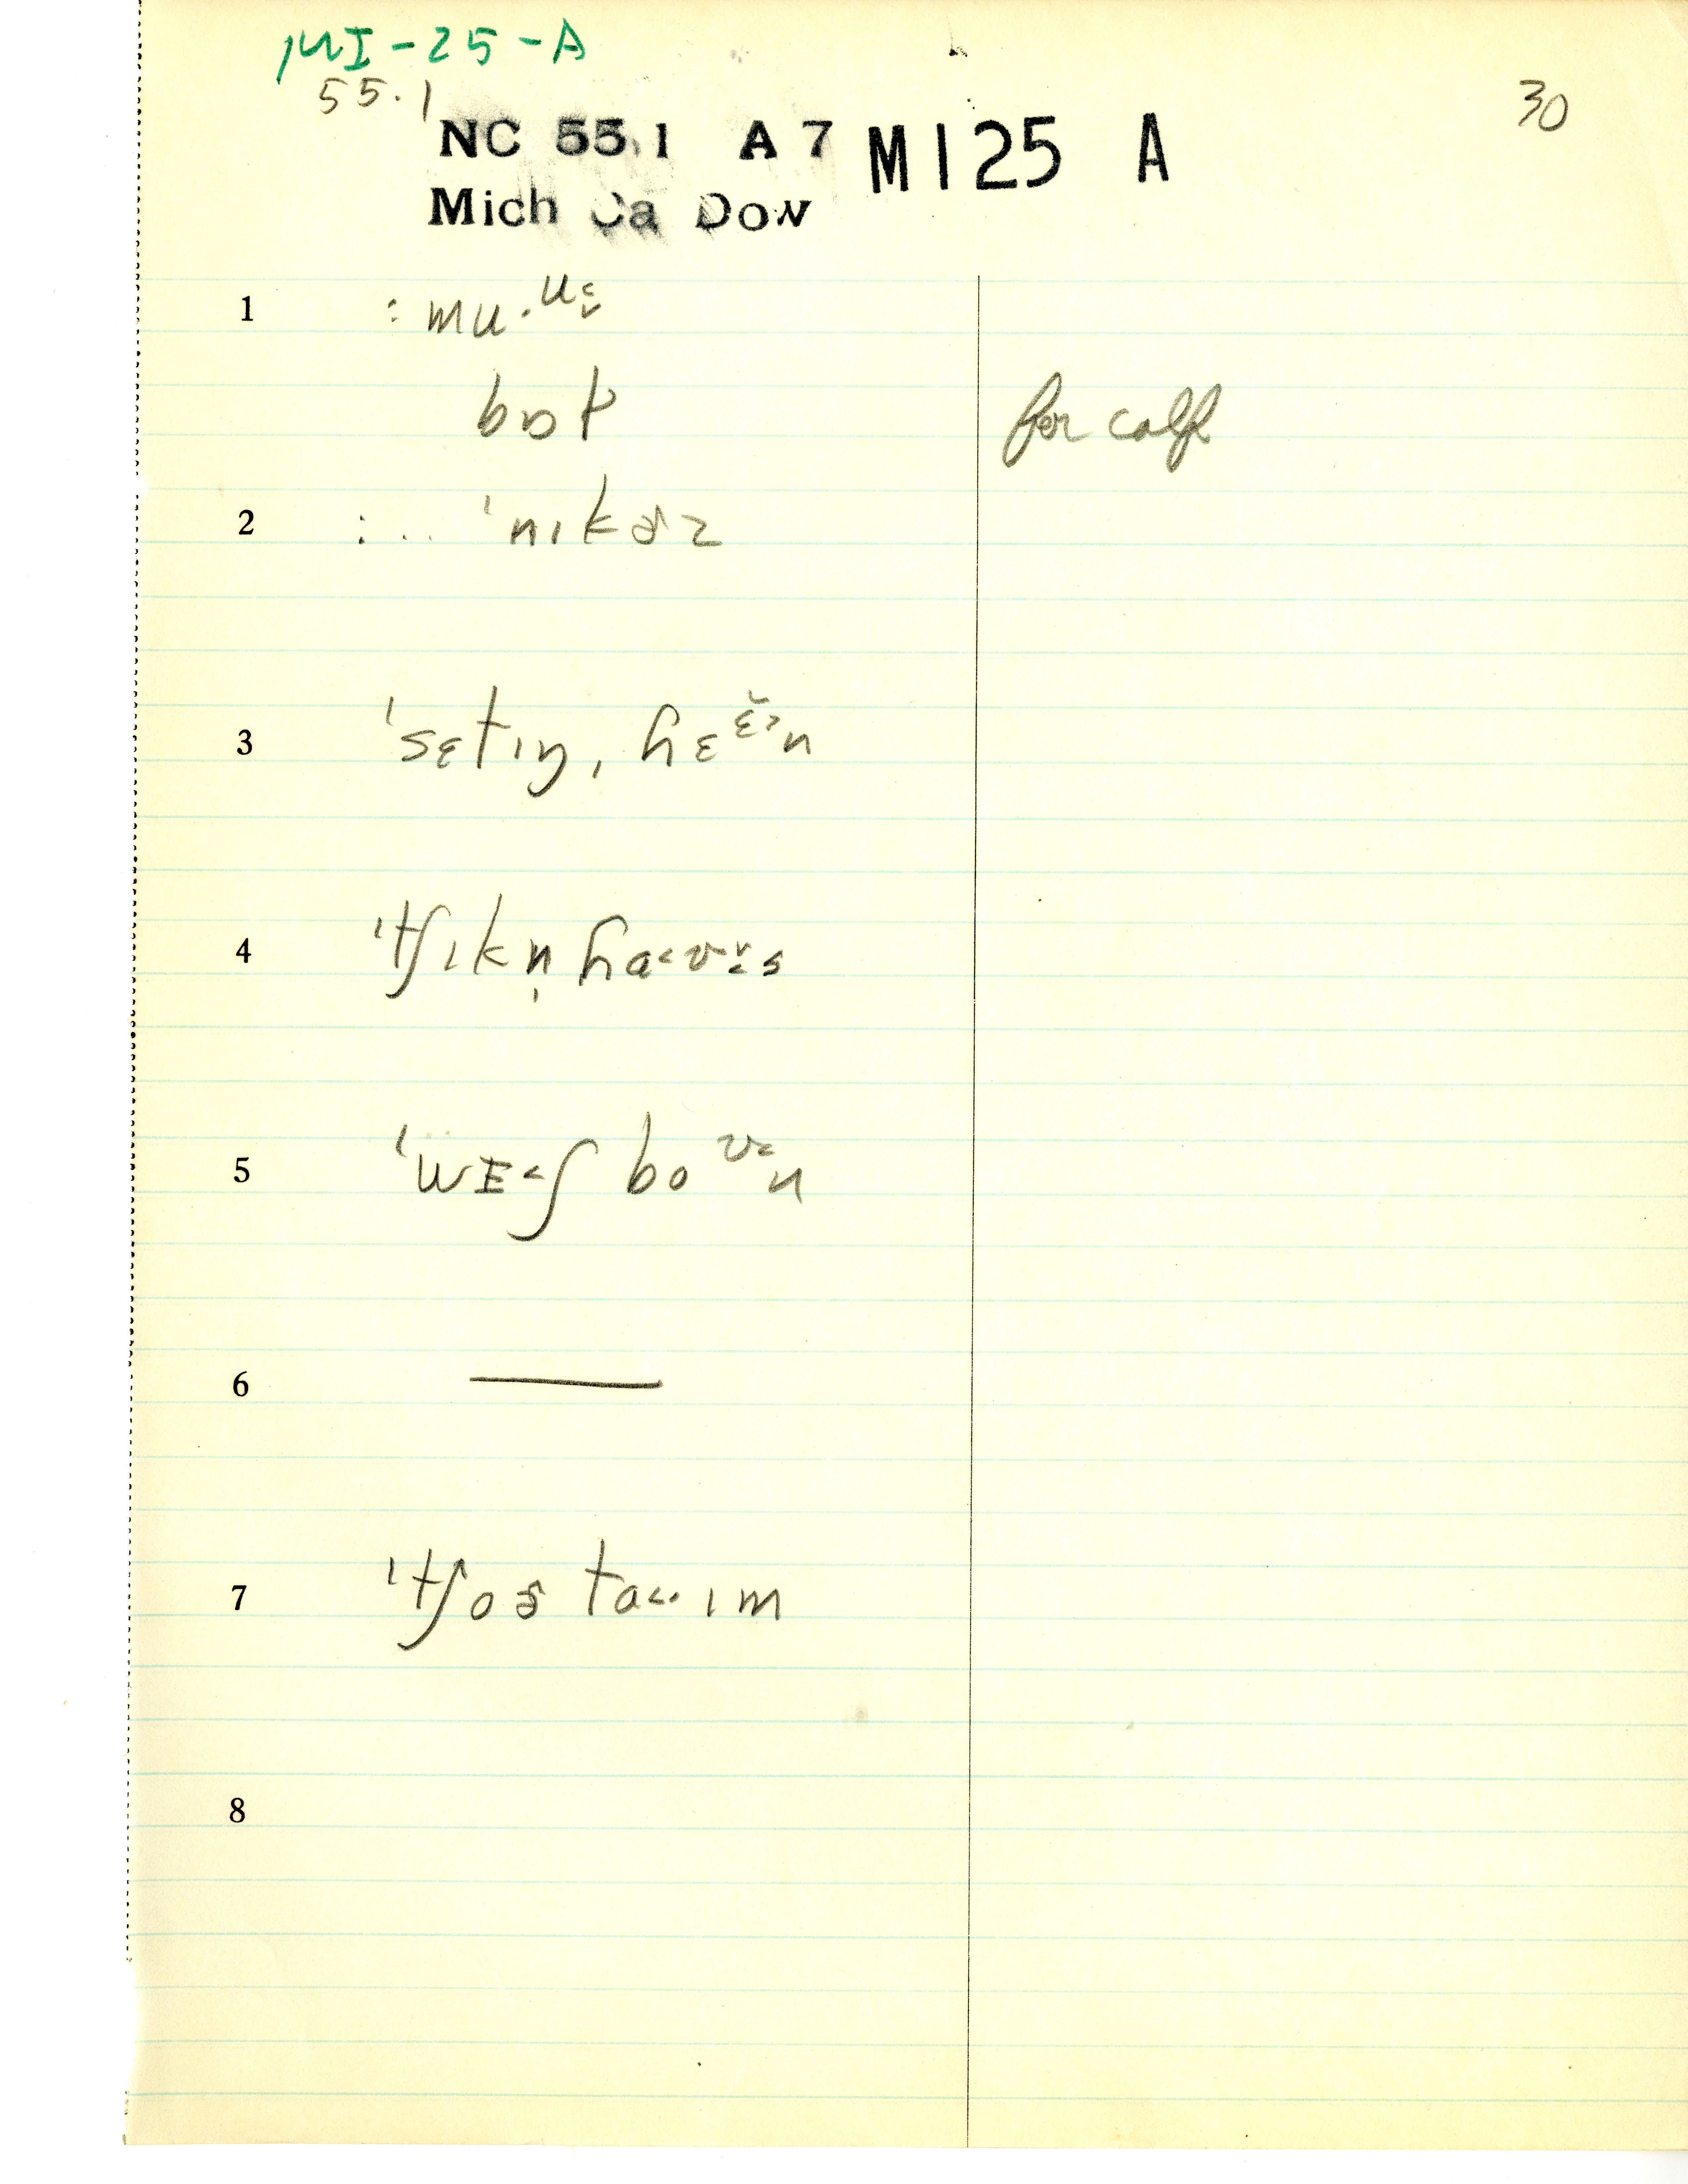 MI-25-A
55.1
30
NC 55.1 A 7 MI25 A
Mich Ca Dow
1 : mu·ᵘ˂
bɒt for calf
2 : ... ˈnɪkɚz
3 ˈsɛtɪŋ, hɛɛ̆˃n
4 ˈtʃɪkn̩ haʊ˂s
5 ˈwɪ˂ʃ boᶷ˂n
6 ———
7 ˈtʃoɚ ta˂·ɪm
8